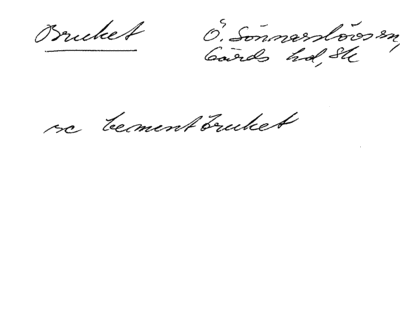 Bruket
Ö. Sönnarslövs sn,
Gärds hd, Sk
se Cementbruket